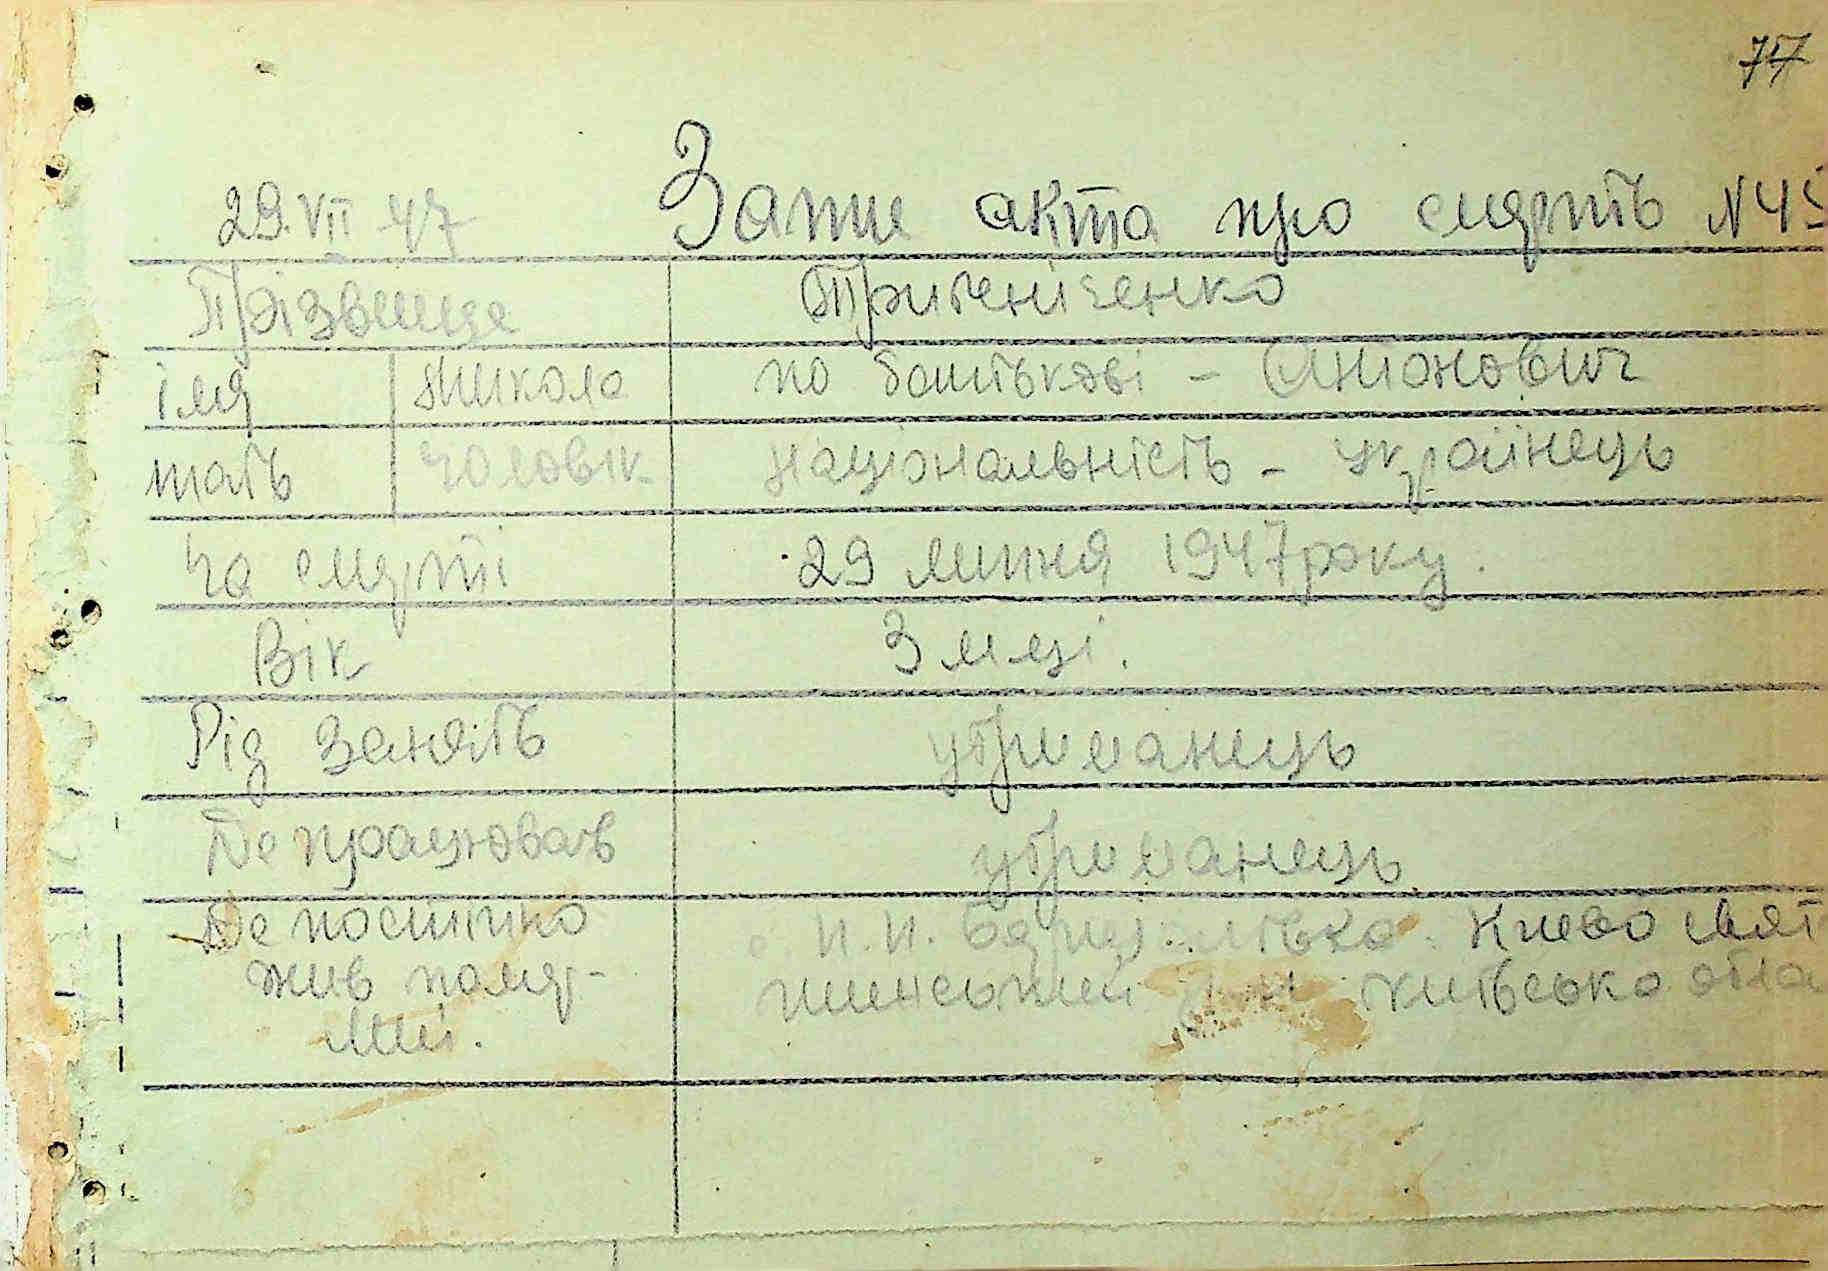 77
29.VII 47 Запис акта про смерть N 45
Прізвище
імя Микола по батькові - Антонович
стать чоловік національність - українець
Ча смерті 29 липня 1947 року.
Вік 3 місяці.
Рід занять утриманець
Де працював утриманець
Де постійно Києво Свят
жив помер- шинський Київсько обла
ший.